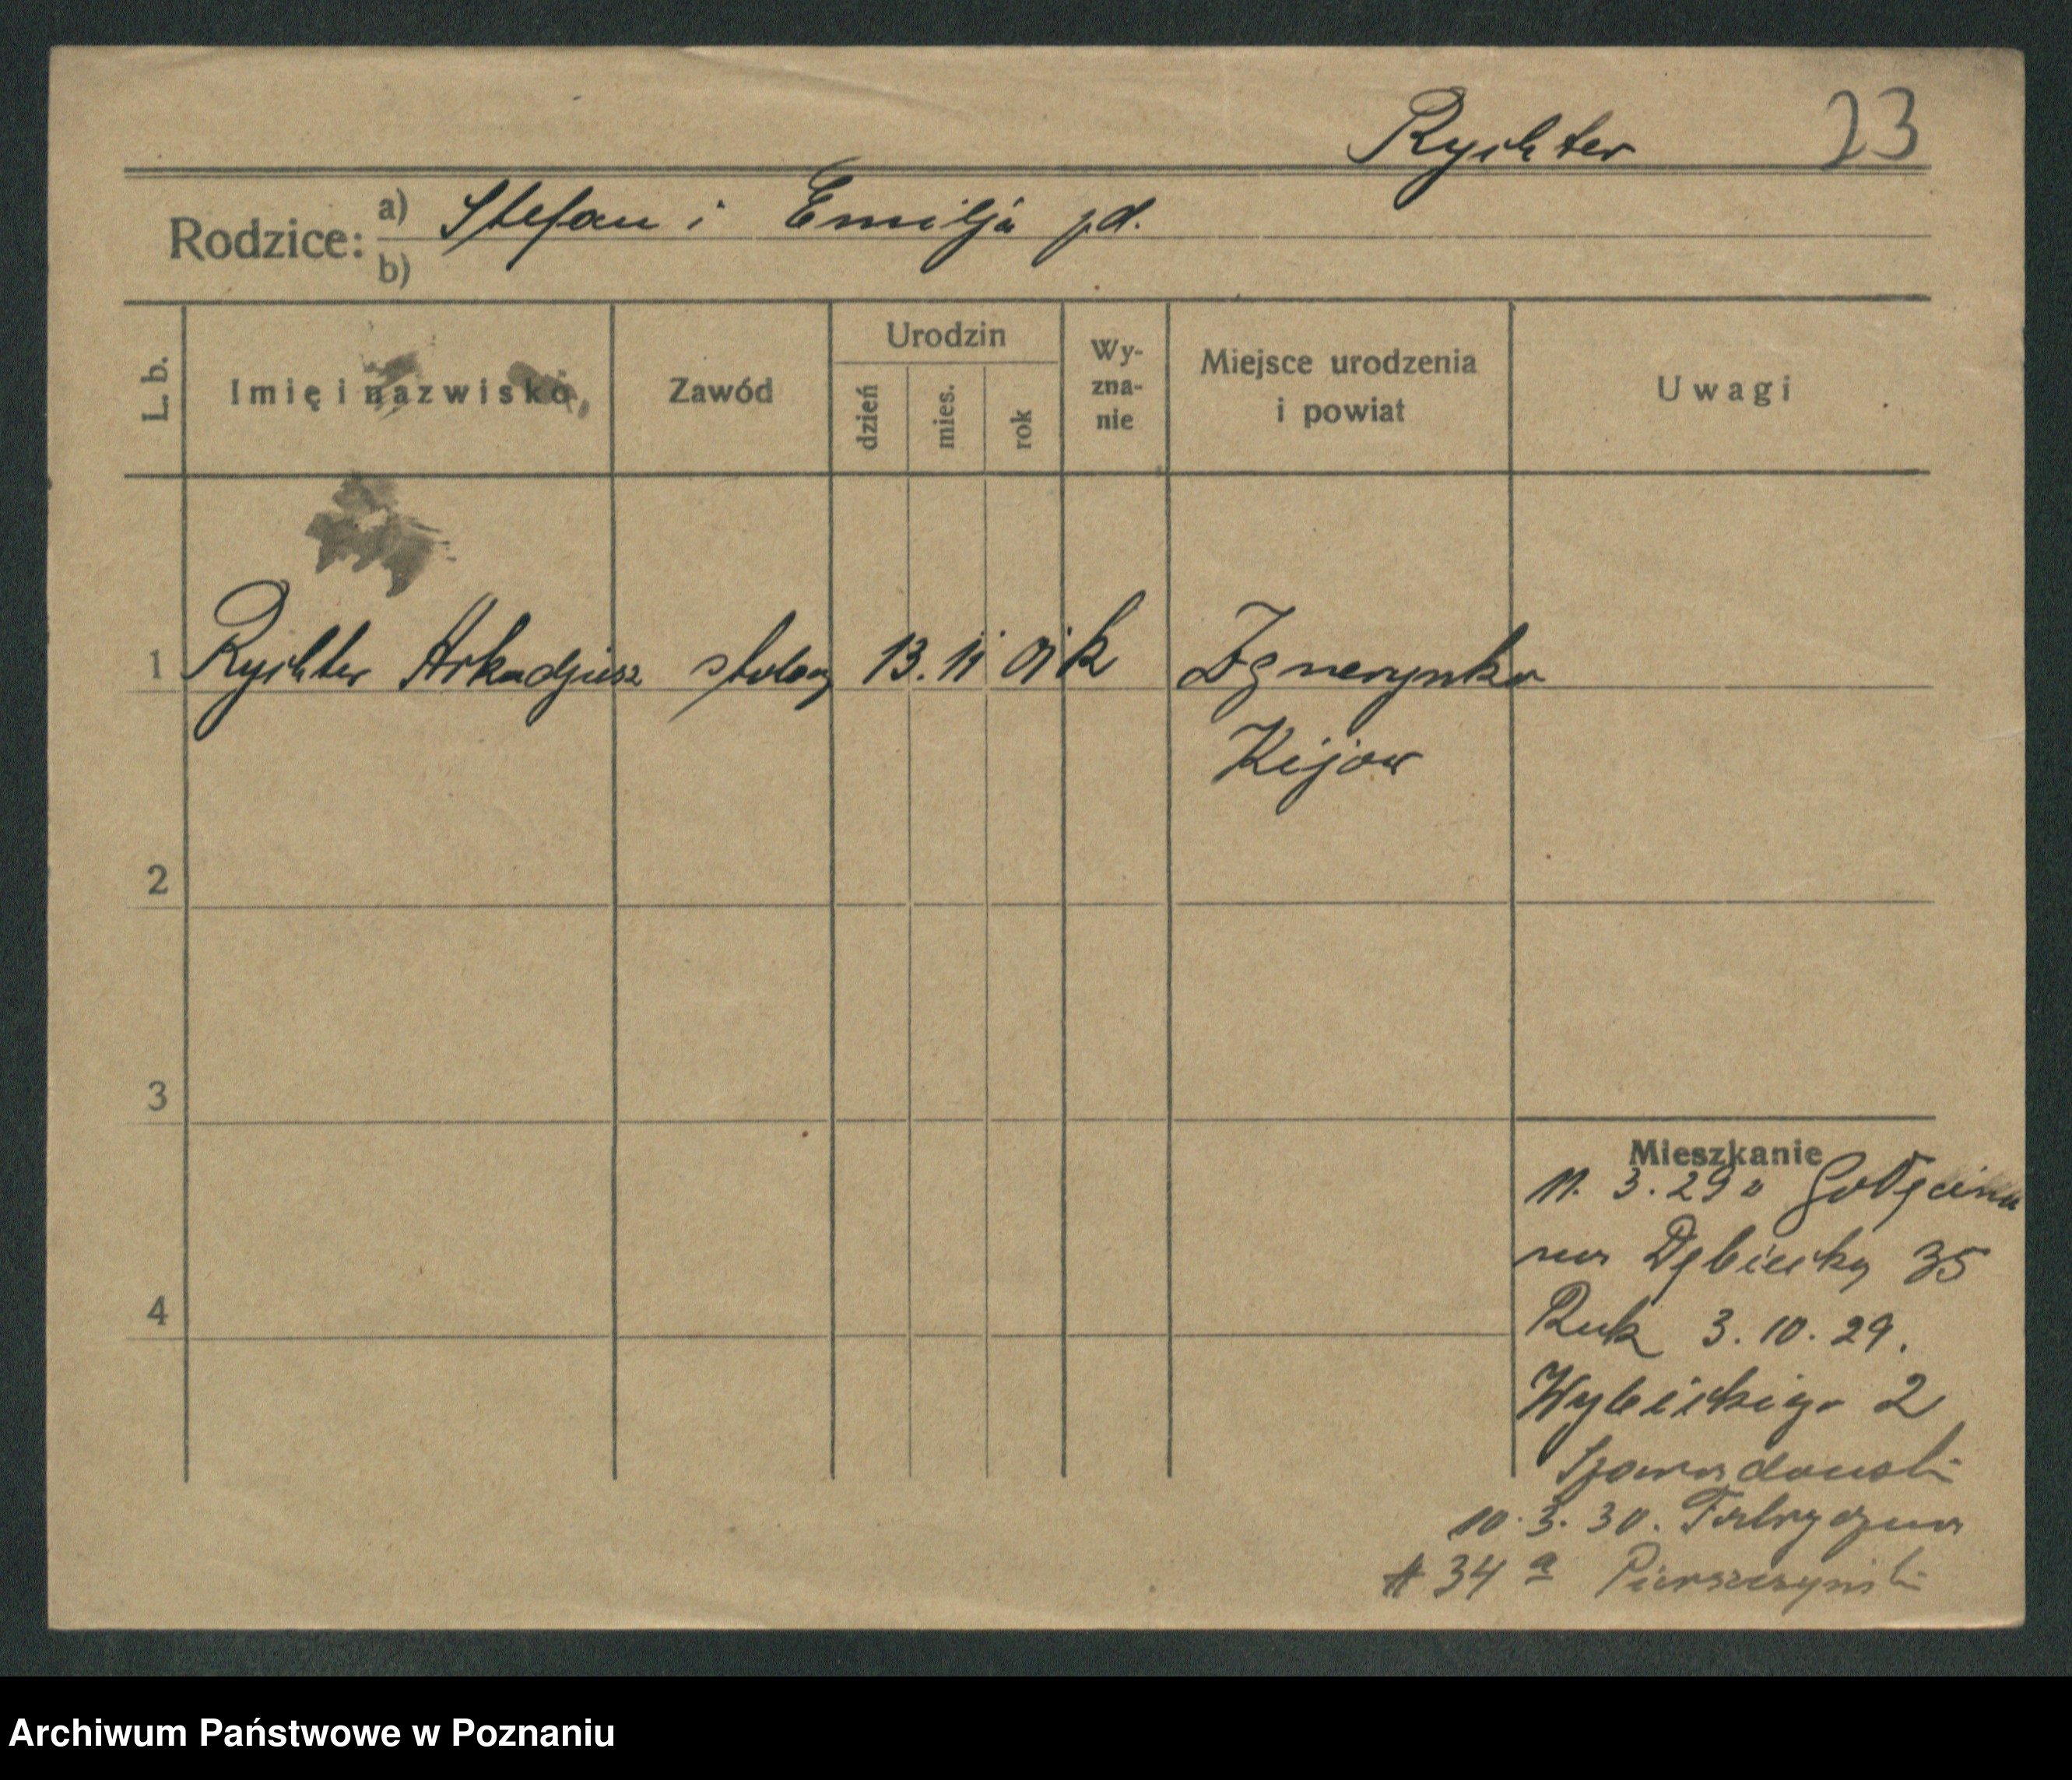 Rychter 23
Rodzice: a) Stefan i Emilja pd.
b)
L. b. Imię i nazwisko Zawód Urodzin dzień mies. rok Wy-zna-nie Miejsce urodzenia i powiat Uwagi
1 Rychter Arkadjusz stolarz 13. 11 01 k
Kijow
2
3
Mieszkanie
11. 3. 29 Gołęcina
na Dębiecką 35
4
3. 10. 29.
Wybickiego 2
10. 3. 30. Fabryczna
34 a
Archiwum Państwowe w Poznaniu